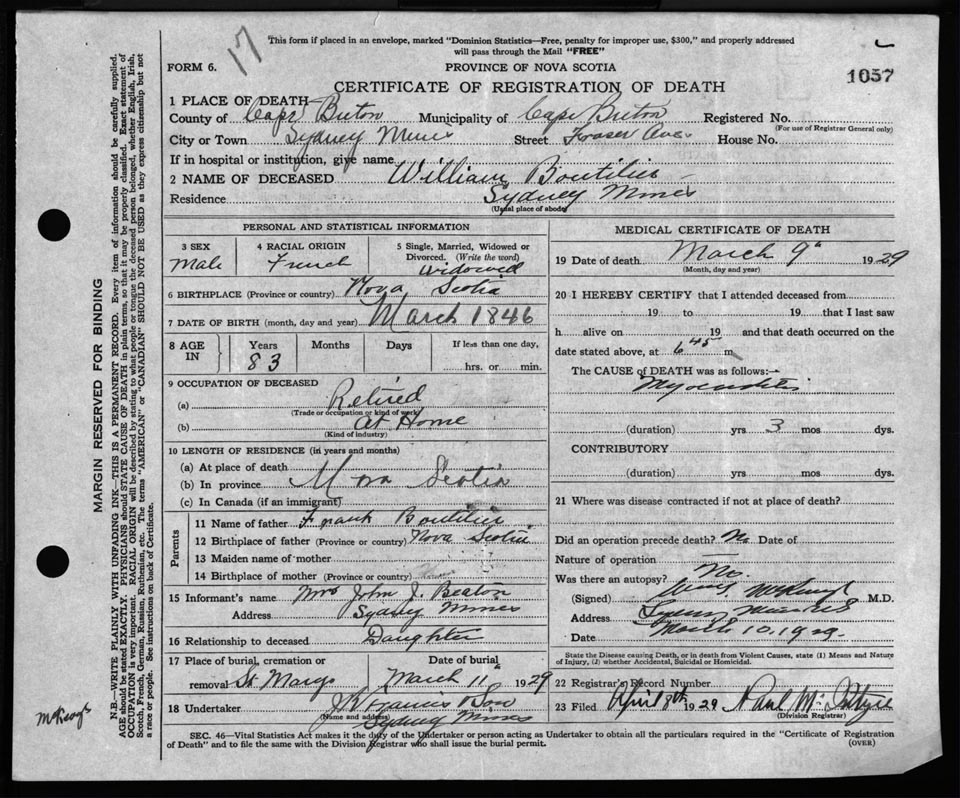 17
This form if placed in an envelope, marked "Dominion Statistics—Free, penalty for improper use, $300," and properly addressed
will pass through the Mail "FREE"
FORM 6.
PROVINCE OF NOVA SCOTIA
1057
CERTIFICATE OF REGISTRATION OF DEATH
1 PLACE OF DEATH—
County of Cape Breton Municipality of Cape Breton Registered No.
(For use of Registrar General only)
City or Town Sydney Mines Street Fraser Ave. House No.
If in hospital or institution, give name
2 NAME OF DECEASED William Boutilier
Residence Sydney Mines
(Usual place of abode)
PERSONAL AND STATISTICAL INFORMATION
3 SEX Male
4 RACIAL ORIGIN French
5 Single, Married, Widowed or
Divorced. (Write the word)
Widowed
6 BIRTHPLACE (Province or country) Nova Scotia
7 DATE OF BIRTH (month, day and year) March 1846
8 AGE IN Years 83 Months Days If less than one day,
hrs. or min.
9 OCCUPATION OF DECEASED
(a) Retired
(Trade or occupation or kind of work)
(b) At Home
(Kind of industry)
10 LENGTH OF RESIDENCE (in years and months)
(a) At place of death
(b) In province Nova Scotia
(c) In Canada (if an immigrant)
Parents
11 Name of father Frank Boutilier
12 Birthplace of father (Province or country) Nova Scotia
13 Maiden name of mother
14 Birthplace of mother (Province or country)
15 Informant's name Mrs John J. Beaton
Address Sydney Mines
16 Relationship to deceased Daughter
17 Place of burial, cremation or Date of burial
removal St Marys March 11" 1929
18 Undertaker
(Name and address) Sydney Mines
MEDICAL CERTIFICATE OF DEATH
19 Date of death March 9" 1929
(Month, day and year)
20 I HEREBY CERTIFY that I attended deceased from
19 to 19 that I last saw
h alive on 19 and that death occurred on the
date stated above, at 6 45 m
The CAUSE of DEATH was as follows:—
(duration) yrs 3 mos dys.
CONTRIBUTORY
(duration) yrs mos dys.
21 Where was disease contracted if not at place of death?
Did an operation precede death? No Date of
Nature of operation —
Was there an autopsy? No.
(Signed) M.D.
Address Sydney Mines
Date March 10, 1929.
State the Disease causing Death, or in death from Violent Causes, state (1) Means and Nature
of Injury, (2) whether Accidental, Suicidal or Homicidal.
22 Registrar's Record Number
23 Filed April 8th 1929
(Division Registrar)
SEC. 46—Vital Statistics Act makes it the duty of the Undertaker or person acting as Undertaker to obtain all the particulars required in the "Certificate of Registration
of Death" and to file the same with the Division Registrar who shall issue the burial permit.
(OVER)
MARGIN RESERVED FOR BINDING
N.B.—WRITE PLAINLY WITH UNFADING INK—THIS IS A PERMANENT RECORD. Every item of information should be carefully supplied.
AGE should be stated EXACTLY. PHYSICIANS should STATE CAUSE OF DEATH in plain terms, so that it may be properly classified. Exact statement of
OCCUPATION is very important. RACIAL ORIGIN will be described by stating to what people or tongue the deceased person belonged, whether English, Irish,
Scotch, French, German, Russian, Ruthenian, etc. The terms "AMERICAN" or "CANADIAN" SHOULD NOT BE USED as they express citizenship but not
a race or people. See instructions on back of Certificate.